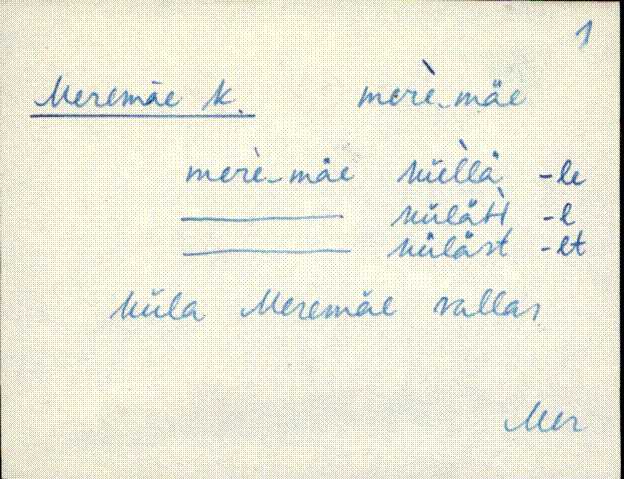 1
Meremäe k. merè_mäe
merè_mäe küllä̀ -le
külä̀st -lt
küla Meremäe vallas
Mer